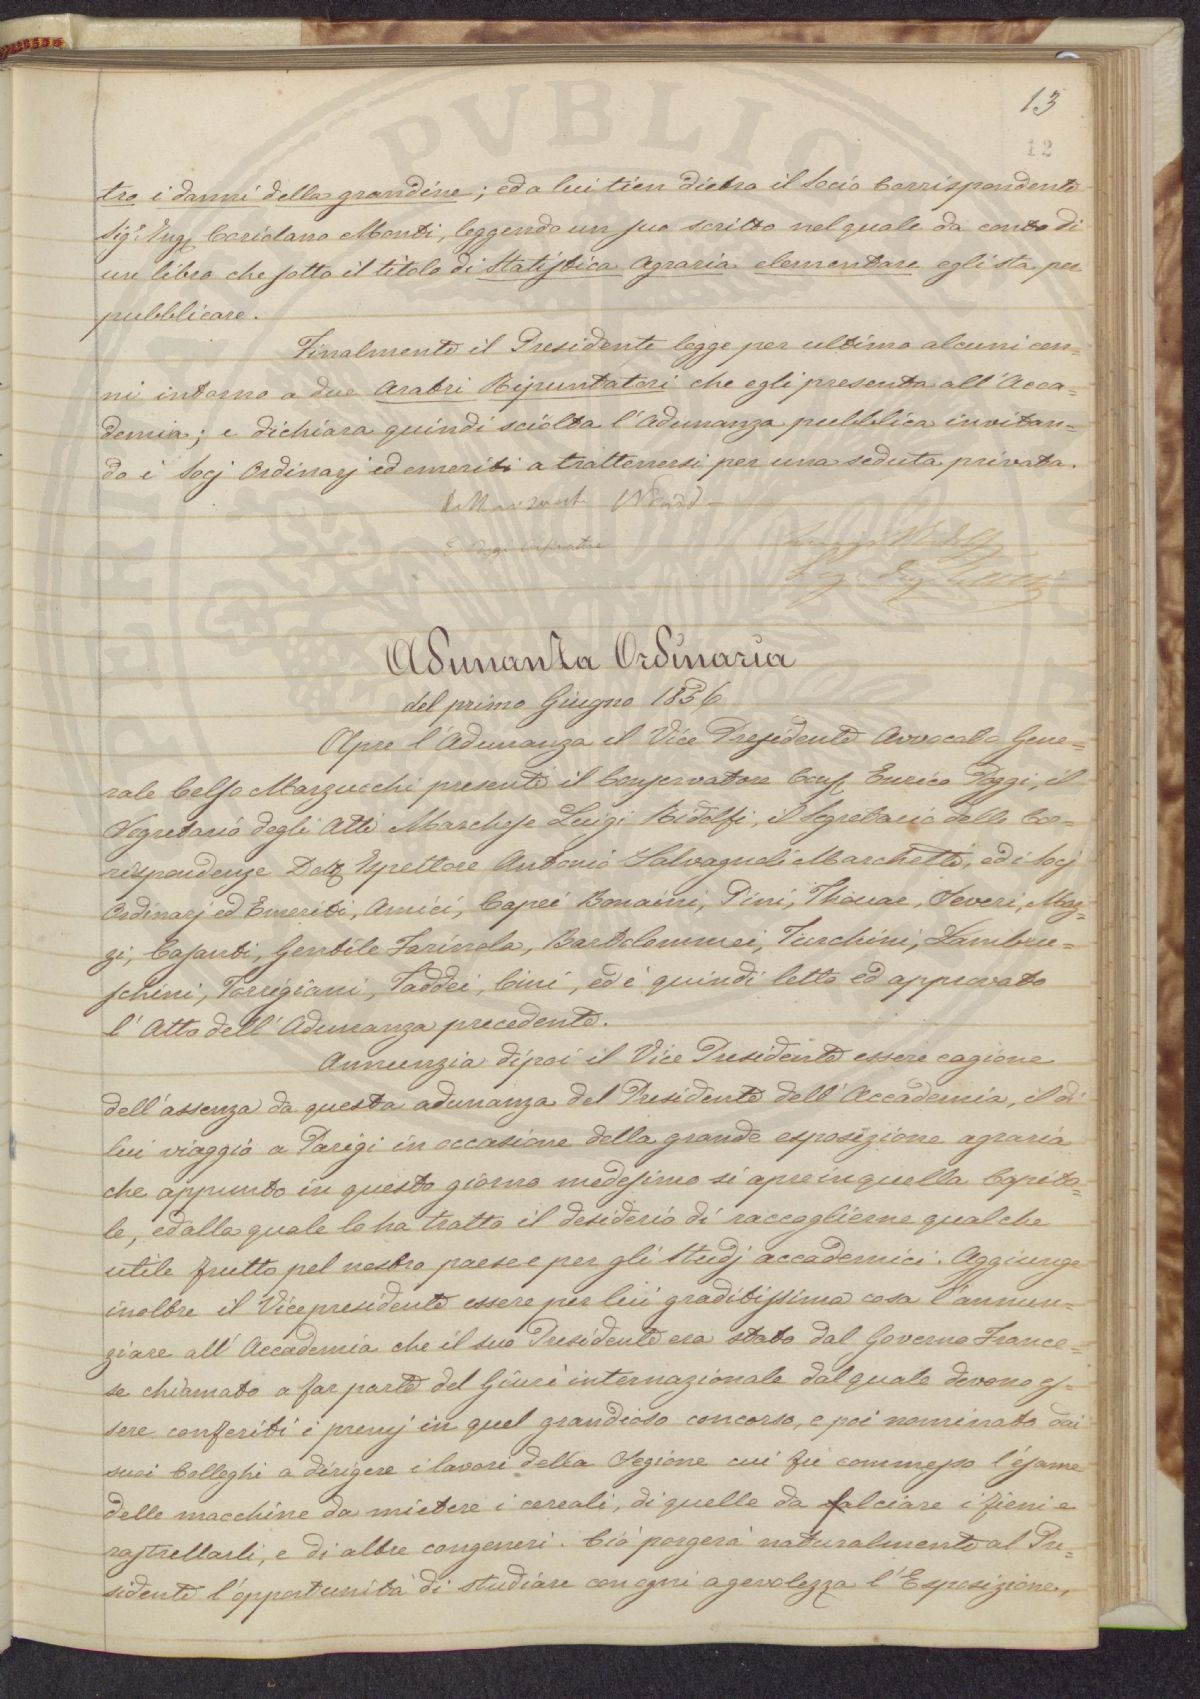 13
12
tro i danni della grandine; ed a lui tien dietro il Socio Corrispondente
Sig.r Ing. Coriolano Monti, leggendo un suo scritto nel quale dà conto di
un libro che sotto il titolo di Statistica Agraria elementare egli sta per
pubblicare.
Finalmente il Presidente legge per ultimo alcuni cen=
ni intorno a due Aratri Ripuntatori che egli presenta all'Acca=
demia; e dichiara quindi sciolta l'Adunanza pubblica invitan=
do i Socj Ordinarj ed emeriti a trattenersi per una seduta privata.
Adunanza Ordinaria
del primo Giugno 1856
Apre l'Adunanza il Vice Presidente Avvocato Gene=
rale Celso Marzucchi presenti il Conservatore Cons. Enrico Poggi, il
Segretario degli Atti Marchese Luigi Ridolfi, il Segretario delle Cor=
rispondenze Dott. Ispettore Antonio Salvagnoli Marchetti, ed i Socj
Ordinarj ed Emeriti, Amici, Capei Bonaini, Pini, Thouar, Severi, Maz=
zi, Casanti, Gentile Farinola, Bartolommei, Turchini, Lambru=
schini, Torrigiani, Taddei, Cini, ed è quindi letto ed approvato
l'Atto dell'Adunanza precedente.
Annunzia dipoi il Vice Presidente essere cagione
dell'assenza da questa adunanza del Presidente dell'Accademia, il di
lui viaggio a Parigi in occasione della grande esposizione agraria
che appunto in questo giorno medesimo si apre in quella Capita=
le, ed alla quale lo ha tratto il desiderio di raccoglierne qualche
utile frutto pel nostro paese e per gli studj accademici. Aggiunge
inoltre il Vicepresidente essere per lui graditissima cosa l'annun=
ziare all'Accademia che il suo Presidente era stato dal Governo France=
se chiamato a far parte del Giurì internazionale dal quale devono es=
sere conferiti i premj in quel grandioso concorso, e poi nominato dai
suoi Colleghi a dirigere i lavori della Sezione cui fù commesso l'esame
delle macchine da mietere i cereali, di quelle da falciare i fieni e
rastrellarli, e di altre congeneri. Ciò porgerà naturalmente al Pre=
sidente l'opportunità di studiare con ogni agevolezza l'Esposizione,